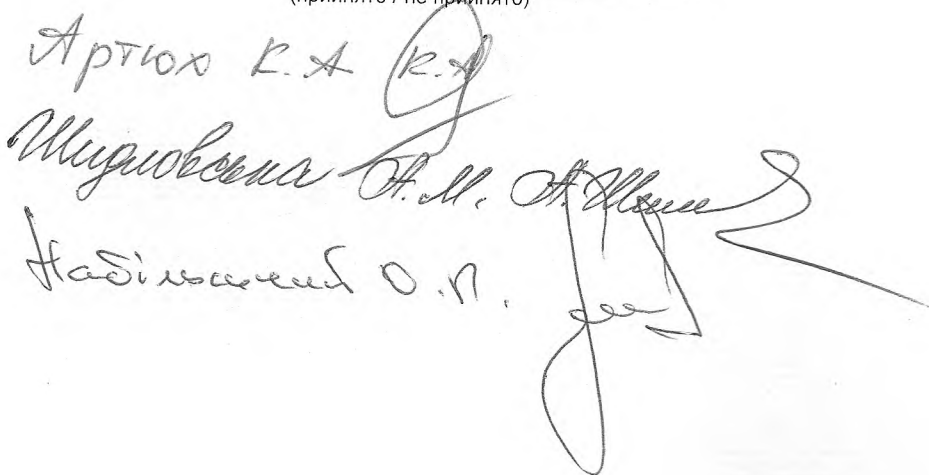 (прийнято / не прийнято)
Артюх К.А К.А
Шидловська А.М. А.Шидл
Набільський О.П.